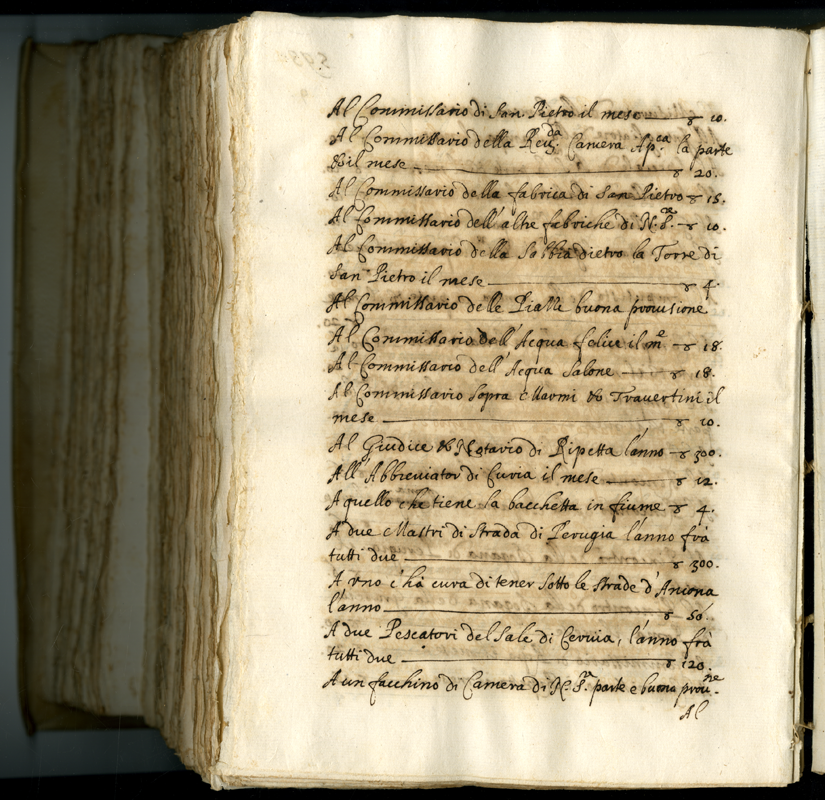 Al Commissario di San Pietro il mese — ▽ 10.
Al Commissario della Reu.da Camera Ap.ca la parte
& il mese — ▽ 20.
Al Commissario della fabrica di San Pietro ▽ 15.
Al Commissario dell'altre fabriche di N. S.re — ▽ 10.
Al Commissario della Sabbia dietro la Torre di
San Pietro il mese — ▽ 4.
Al Commissario delle Piazze buona prouisione
Al Commissario dell'Acqua felice il m.e — ▽ 18.
Al Commissario dell'Acqua Salone — ▽ 18.
Al Commissario sopra i Marmi & Trauertini il
mese — ▽ 10.
Al Giudice & Notario di Ripetta l'anno — ▽ 300.
All Abbreviator di Curia il mese — ▽ 12.
A quello che tiene la bacchetta in fiume — ▽ 4.
A due Mastri di strada di Perugia l'anno frà
tutti due — ▽ 300.
A vno c'hà cura di tener sotto le strade d'Ancona
l'anno — ▽ 50.
A due Pescatori del Sale di Ceruia, l'anno frà
tutti due — ▽ 120.
A un facchino di Camera di N. S.re parte e buona prou.ne
Al